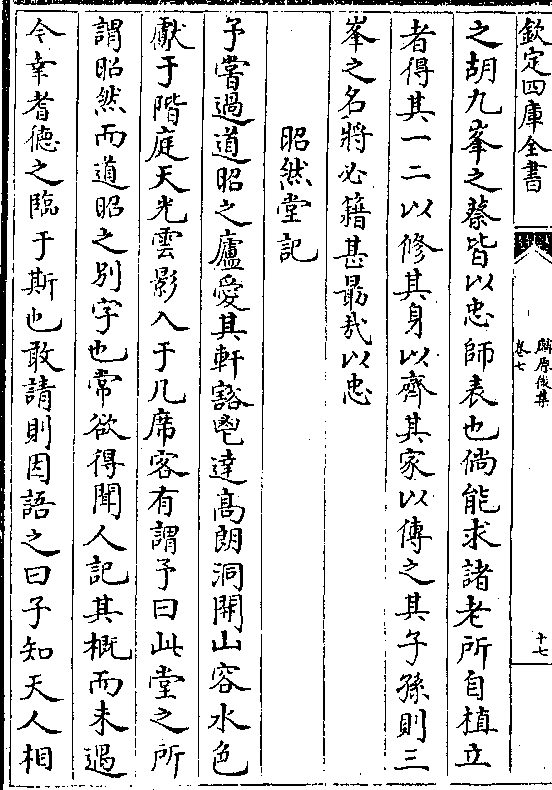 欽定四庫全書
麟原後集
卷七
十七
之胡九峯之蔡皆以忠師表也倘能求諸老所自植立
者得其一二以修其身以齊其家以傳之其子孫則三
峯之名將必籍甚勗哉以忠
昭然堂記
予嘗過道昭之廬愛其軒豁鬯達高朗洞開山容水色
獻于階庭天光雲影入于几席客有謂予曰此堂之所
謂昭然而道昭之別字也常欲得聞人記其概而未遇
今幸耆德之臨于斯也敢請則因語之曰子知天人相